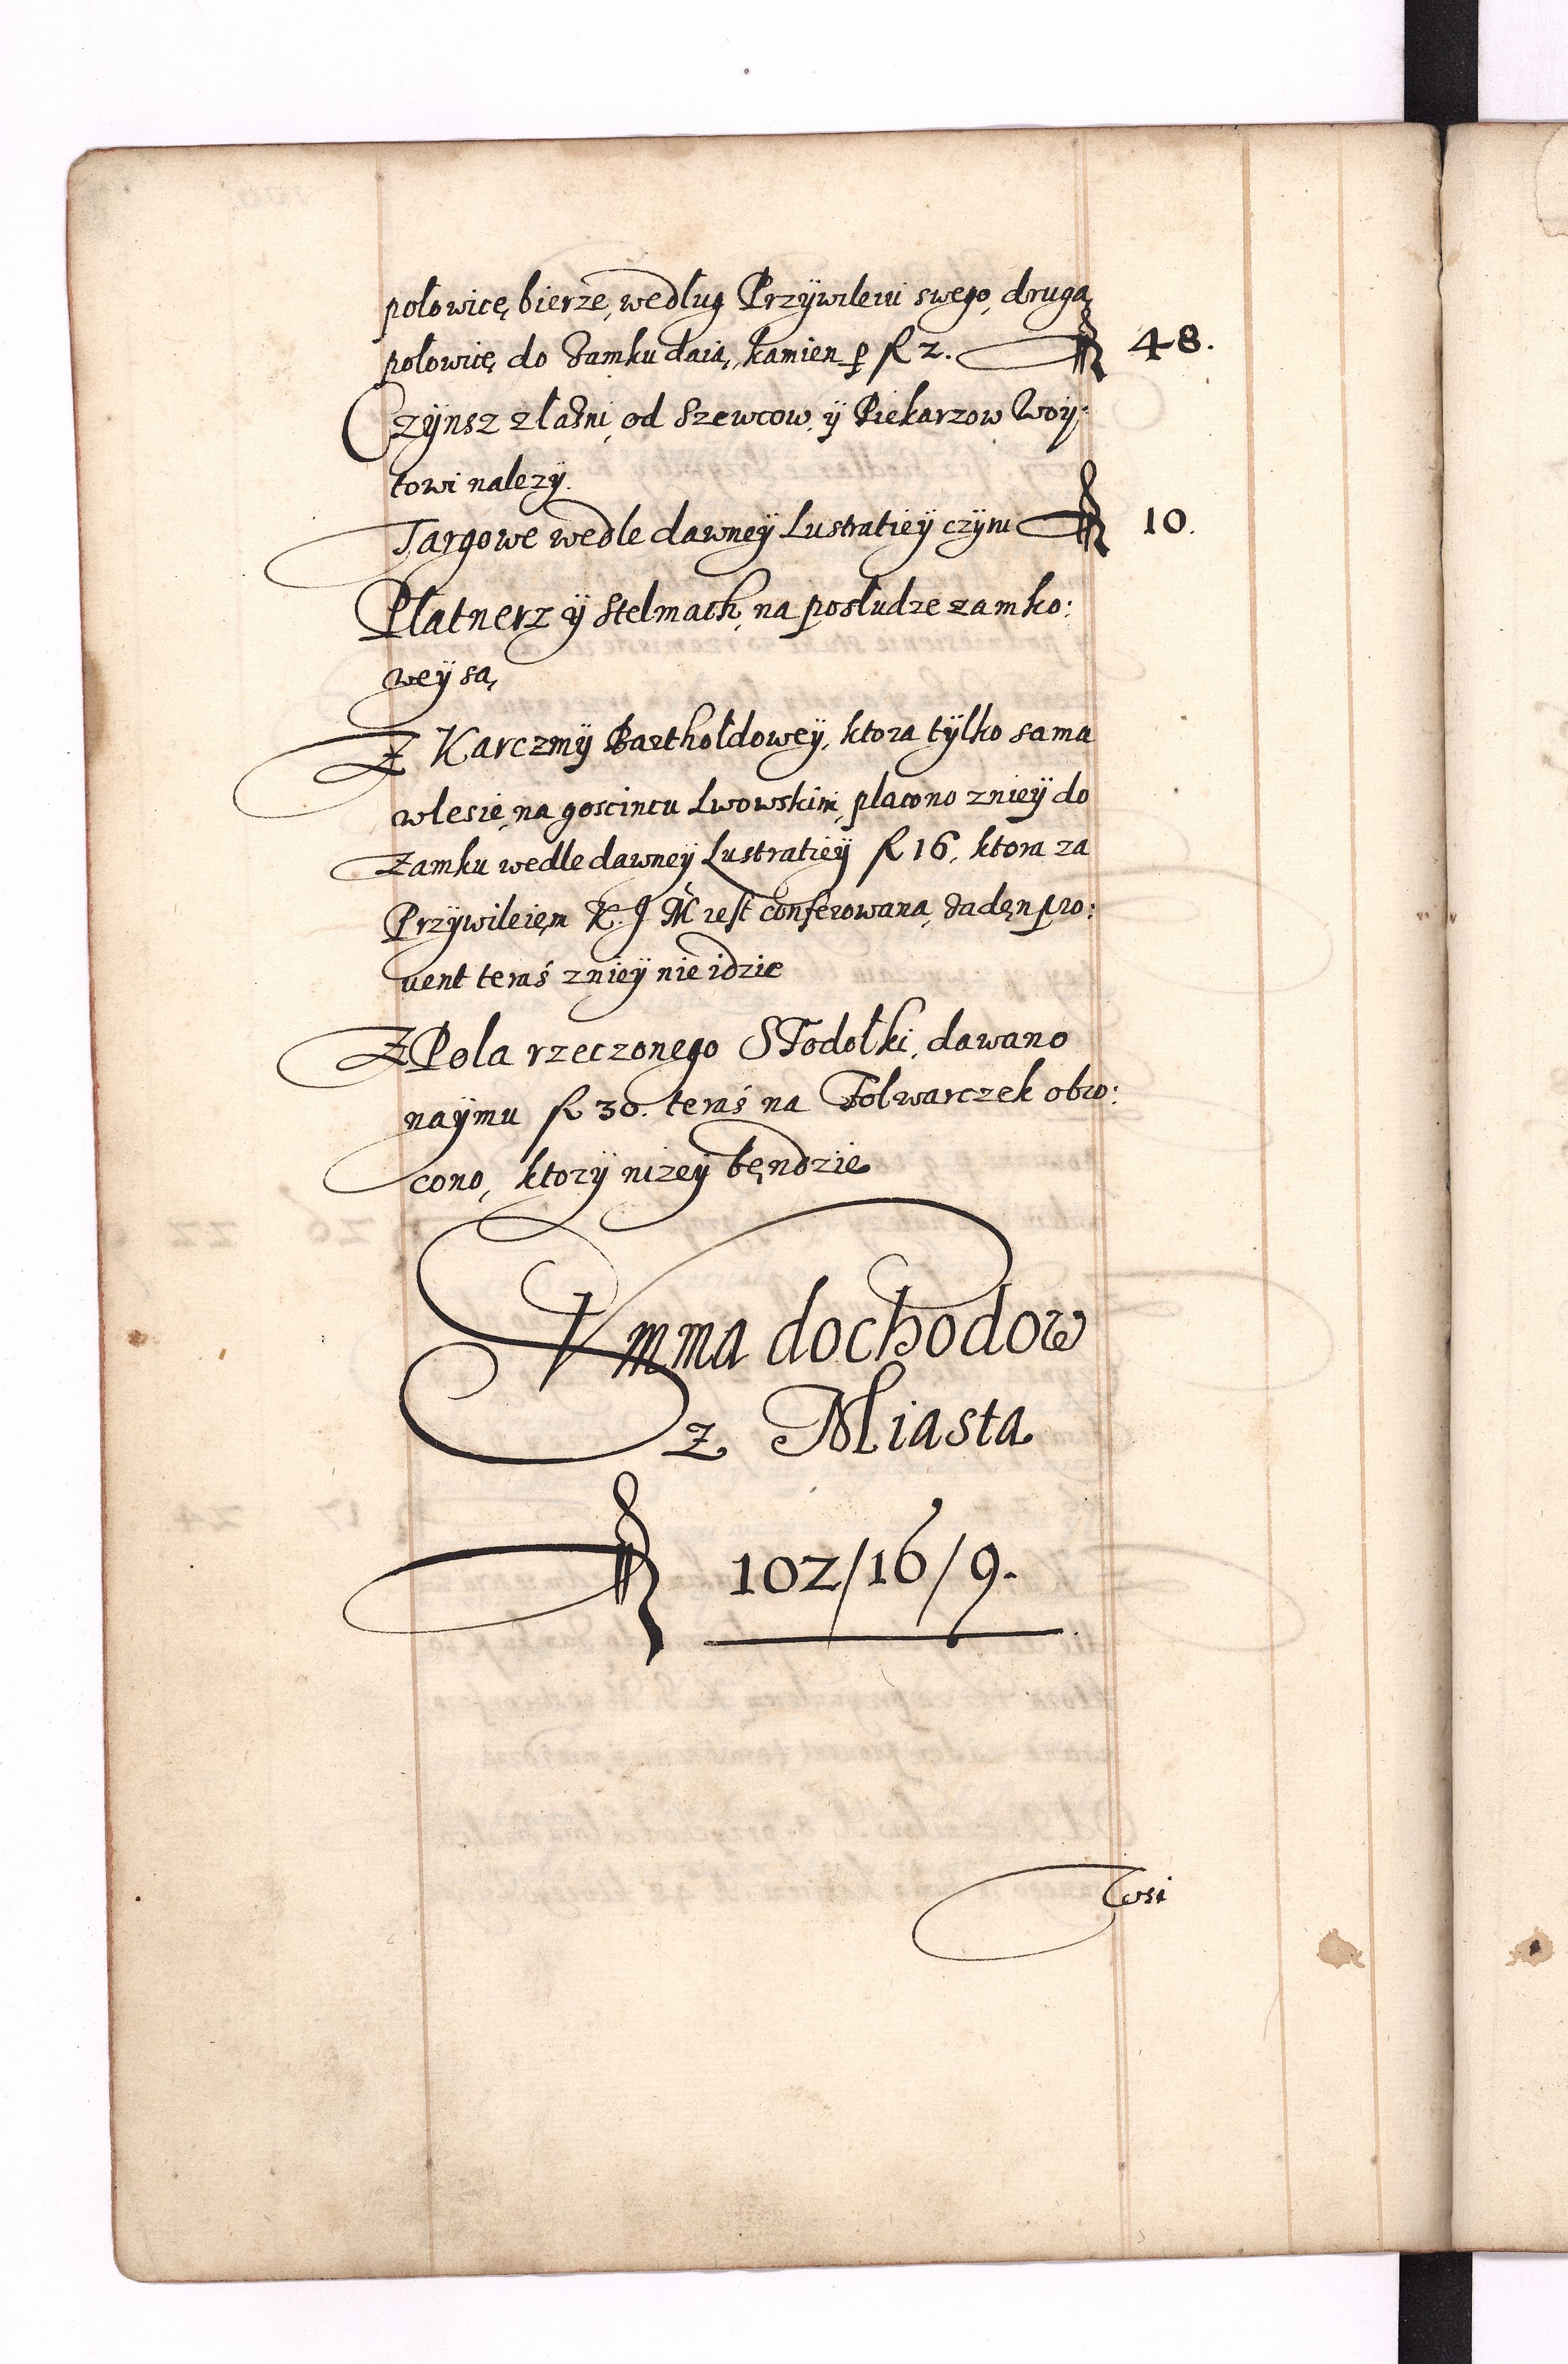 połowicę bierze, według Przÿwileiu swego, drugą
połowicę do Zamku daią, kamien ꝑ fl 2. fl 48.
Czÿnsz złaźni od Szewcow, ÿ Piekarzow Woÿ:
towi nalezÿ.
Targowe wedle dawneÿ Lustratieÿ czÿni fl 10.
Płatnerz ÿ Stelmach, na posłudze zamko:
weÿ są
Z Karczmÿ Bartholdoweÿ, ktora tÿlko sama
wlesie, na goscincu Lwowskim, płacono znieÿ do
Zamku wedle dawneÿ Lustratieÿ fl 16, ktora za
Przÿwileięm K. J M iest conferowana, żadęn pro:
uent teraś znieÿ nie idzie
Z Pola rzeczonego Stodołki, dawano
naÿmu fl 30. teraś na Folwarczek obro:
cono, ktorÿ nizeÿ będzie
Summa dochodow
z Miasta
fl 102/16/9.
Wsi